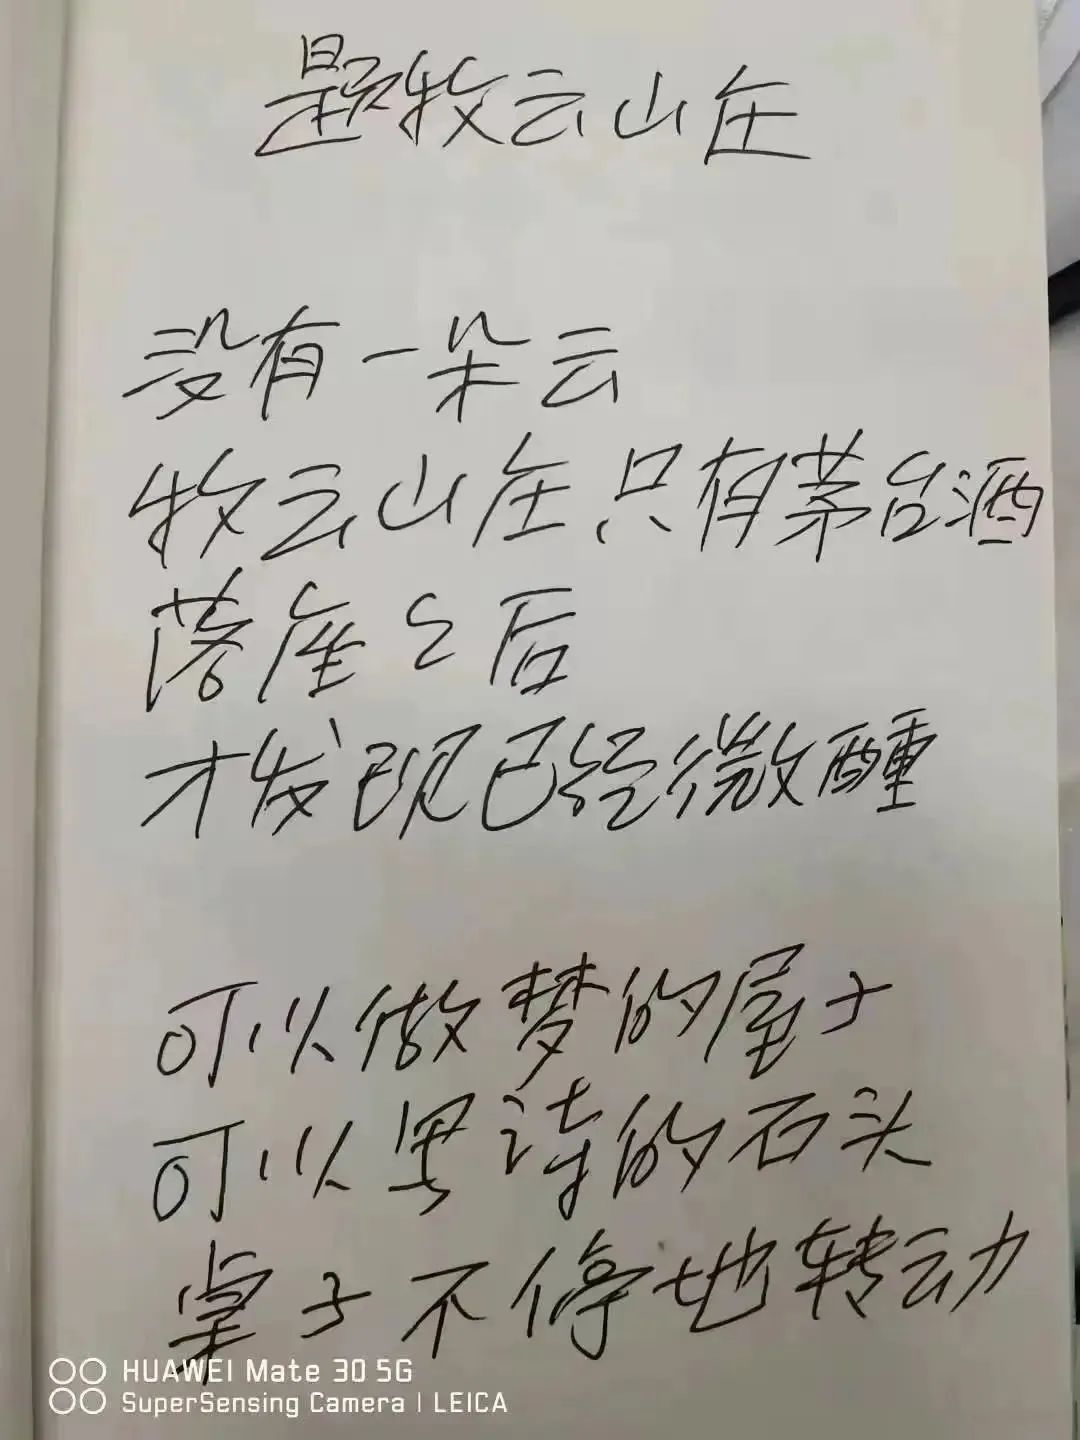 题牧云山庄
没有一朵云
牧云山庄只有茅台酒
落座之后
才发现已经微醺
可以做梦的屋子
可以写诗的石头
桌子不停地转动
HUAWEI Mate 30 5G
SuperSensing Camera | LEICA